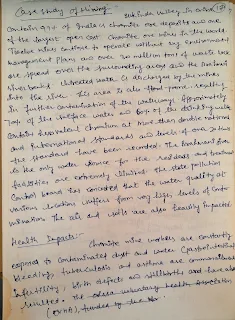 Case study of Mining:- Sukinda valley in Orissa
Contains 97% of India's chromite ore deposits and one
of the largest open cast chromite ore mines in the world.
Twelve mines continue to operate without any environmental
management plans and over 30 million tons of waste rock
are spread over the surrounding areas and the
river banks. Untreated water is discharged by the mines
into the river. This area is also flood-prone, resulting
in further contamination of the waterways. Approximately
70% of the surface water and 60% of the drinking water
contains hexavalent chromium at more than double national
and international standards and levels of over 20 times
the standard have been recorded. The
is the only water source for the residents and treatment
facilities are extremely limited. The state pollution
control board has conceded that the water quality at
various locations suffers from very high levels of conta-
mination. The air and soils are also heavily impacted.
Health Impacts:-
Chromite mine workers are constantly
exposed to contaminated dust and water. Gastrointestinal
bleeding, tuberculosis and asthma are common ailments
Infertility, birth defects and stillbirths and have also
resulted. The Orissa voluntary health Association
funded by